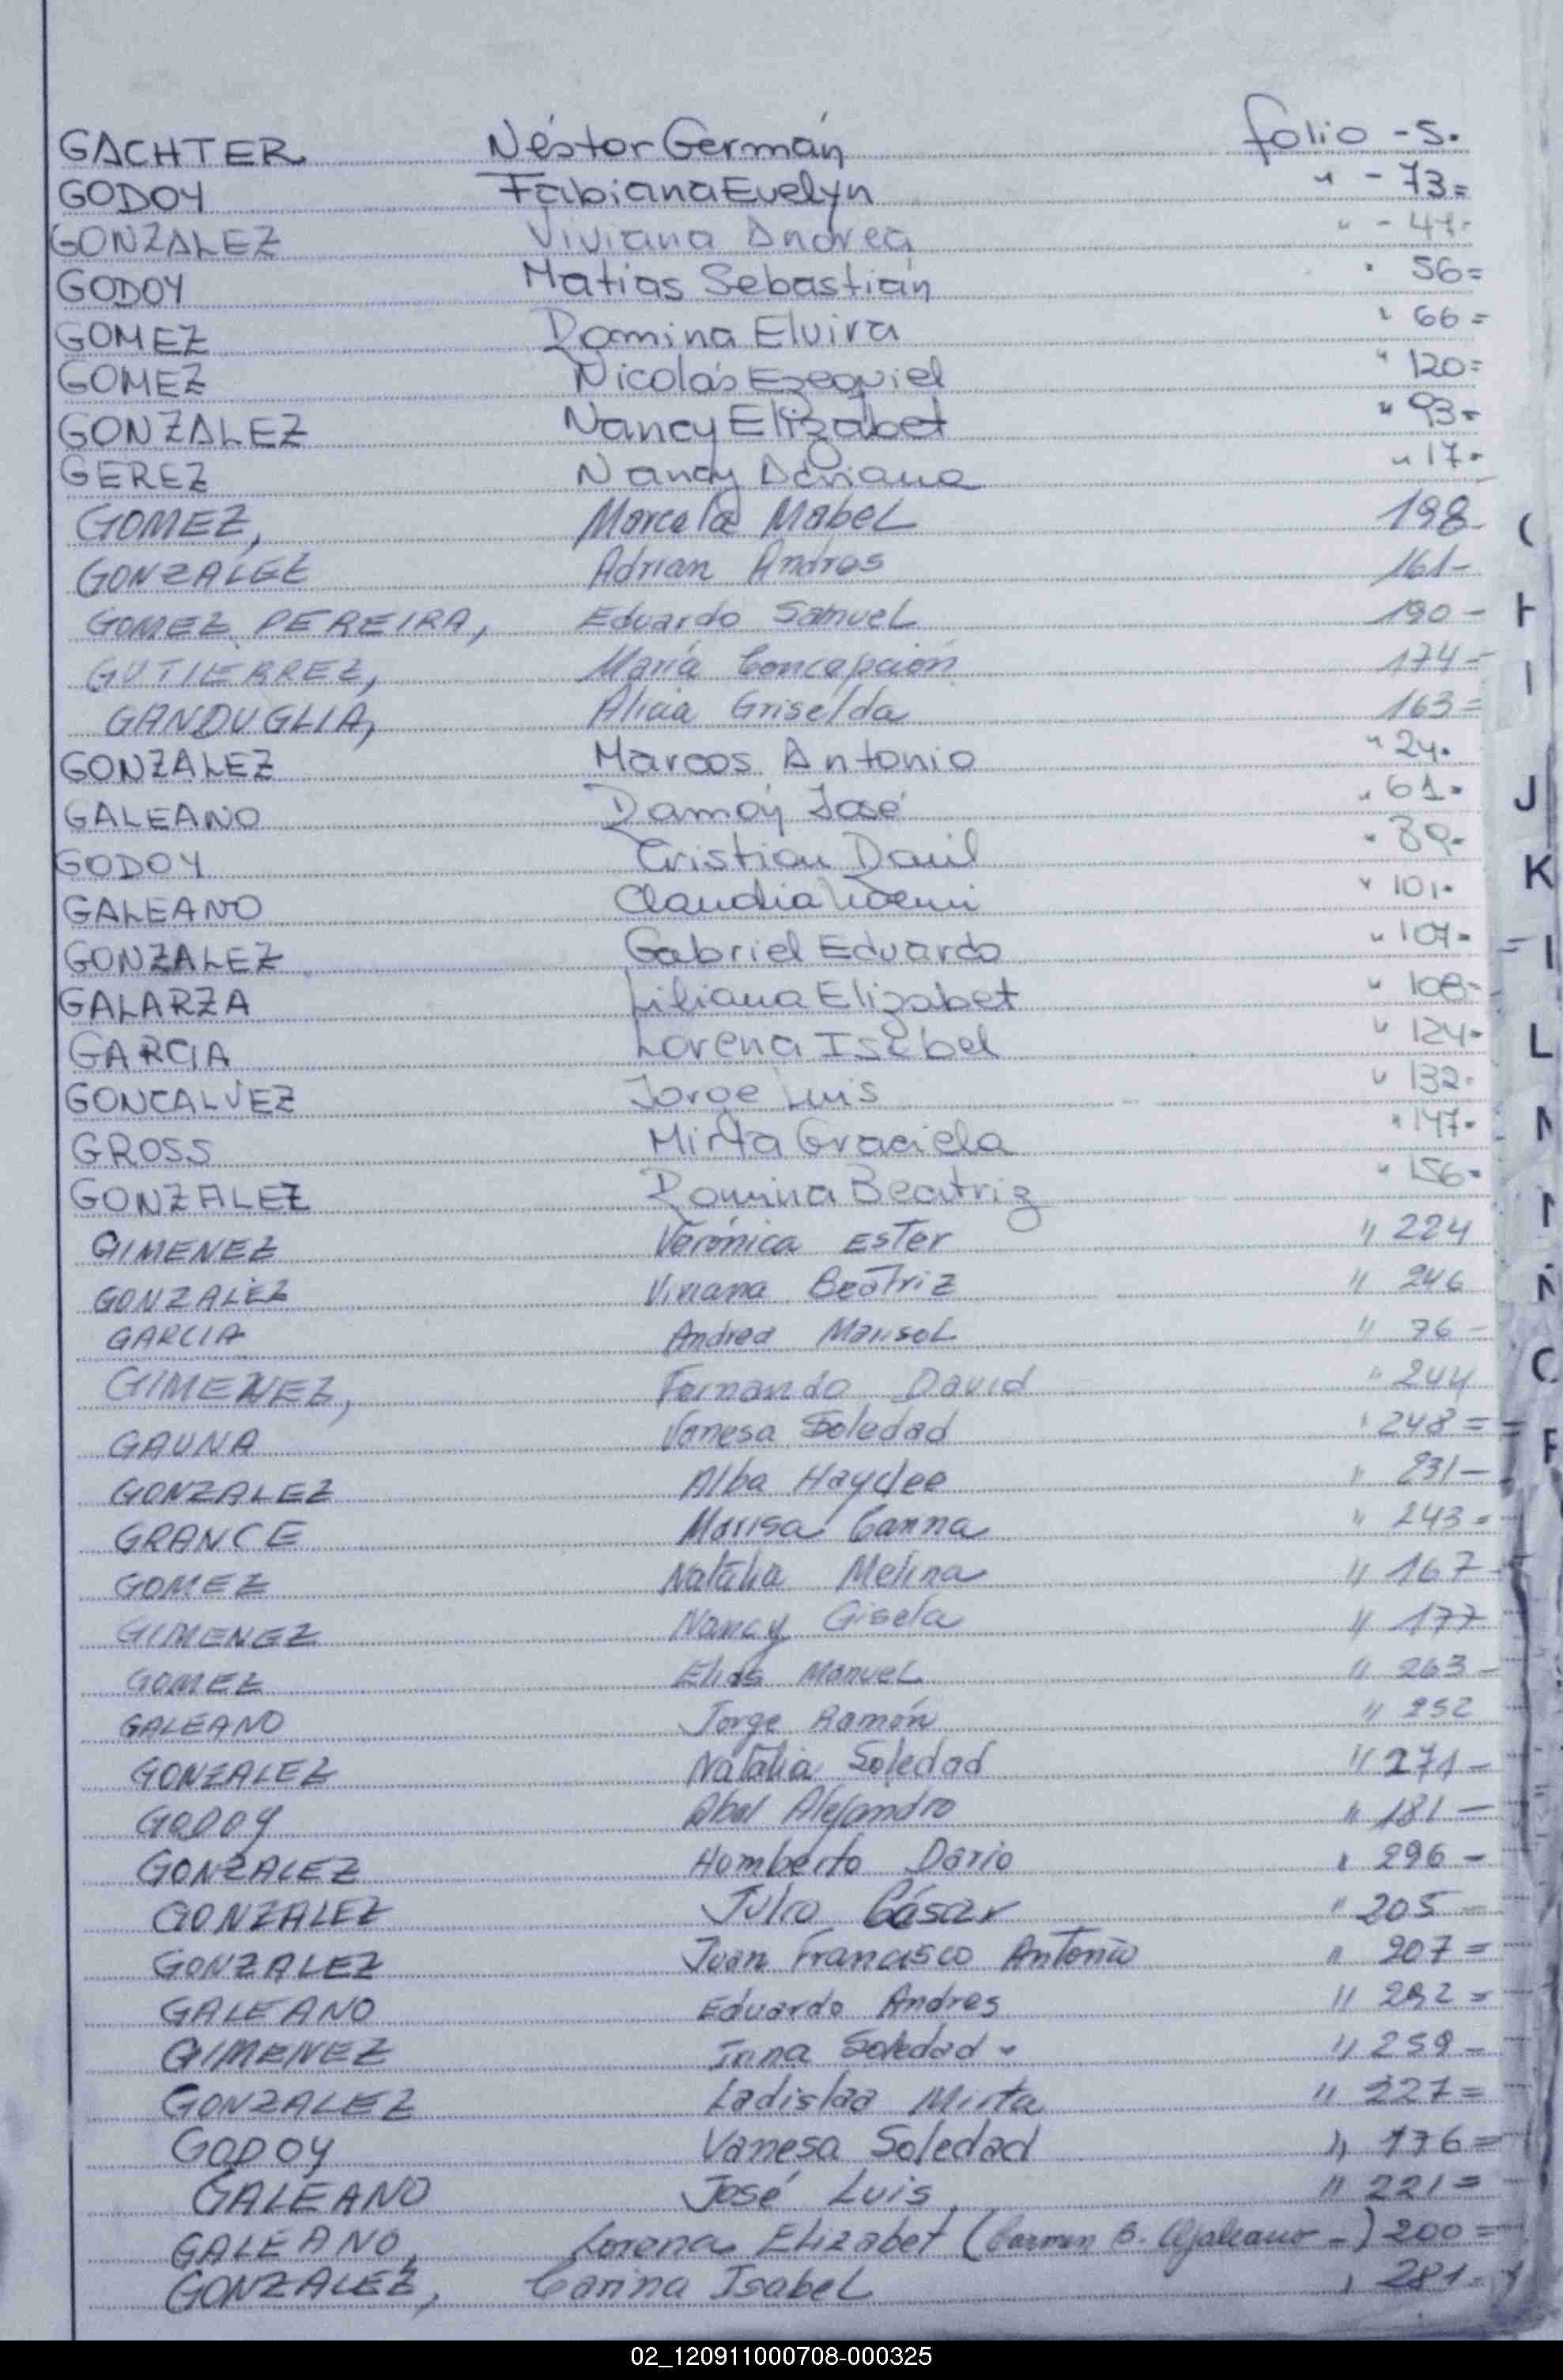 GACHTER Néstor Germán folio - 5.
GODOY Fabiana Evelyn " - 73=
GONZALEZ Viviana Andrea " - 47-
GODOY Matías Sebastián " 56=
GOMEZ Romina Elvira " 66=
GOMEZ Nicolás Ezequiel " 120=
GONZALEZ Nancy Elizabet " 93-
GEREZ Nancy Adriana " 17-
GOMEZ, Marcela Mabel 198
GONZALEZ Adrian Andres 161-
GOMEZ PEREIRA, Eduardo Samuel 190-
GUTIERREZ, María Concepción 174-
GANDUGLIA, Alicia Griselda 163=
GONZALEZ Marcos Antonio " 24.
GALEANO Ramón José " 61-
GODOY Cristian Daniel " 89-
GALEANO Claudia Noemi " 101.
GONZALEZ Gabriel Eduardo " 107-
GALARZA Liliana Elizabet " 108-
GARCIA Lorena Isabel " 124-
GONCALVEZ Jorge Luis " 132-
GROSS Mirta Graciela " 147-
GONZALEZ Romina Beatriz " 156-
GIMENEZ Verónica Ester " 224
GONZALEZ Viviana Beatriz " 246
GARCIA Andrea Marisol " 76-
GIMENEZ, Fernando David " 244
GAUNA Vanesa Soledad " 248=
GONZALEZ Alba Haydee " 231-
GRANCE Marisa Carina " 243=
GOMEZ Natalia Melina " 167-
GIMENEZ Nancy Gisela " 177
GOMEZ Elias Manuel " 263-
GALEANO Jorge Ramón " 252
GONZALEZ Natalia Soledad " 271-
GODOY Abel Alejandro " 181-
GONZALEZ Homberto Dario " 296-
GONZALEZ Julio César " 205-
GONZALEZ Juan Francisco Antonio " 207=
GALEANO Eduardo Andres " 292=
GIMENEZ Irina Soledad - " 259-
GONZALEZ Ladislaa Mirta " 227=
GODOY Vanesa Soledad " 176=
GALEANO José Luis, " 221=
GALEANO, Lorena Elizabet (Carmen B. Galeano -) 200=
GONZALEZ, Carina Isabel " 281-
H
I
J
K
L
02_120911000708-000325